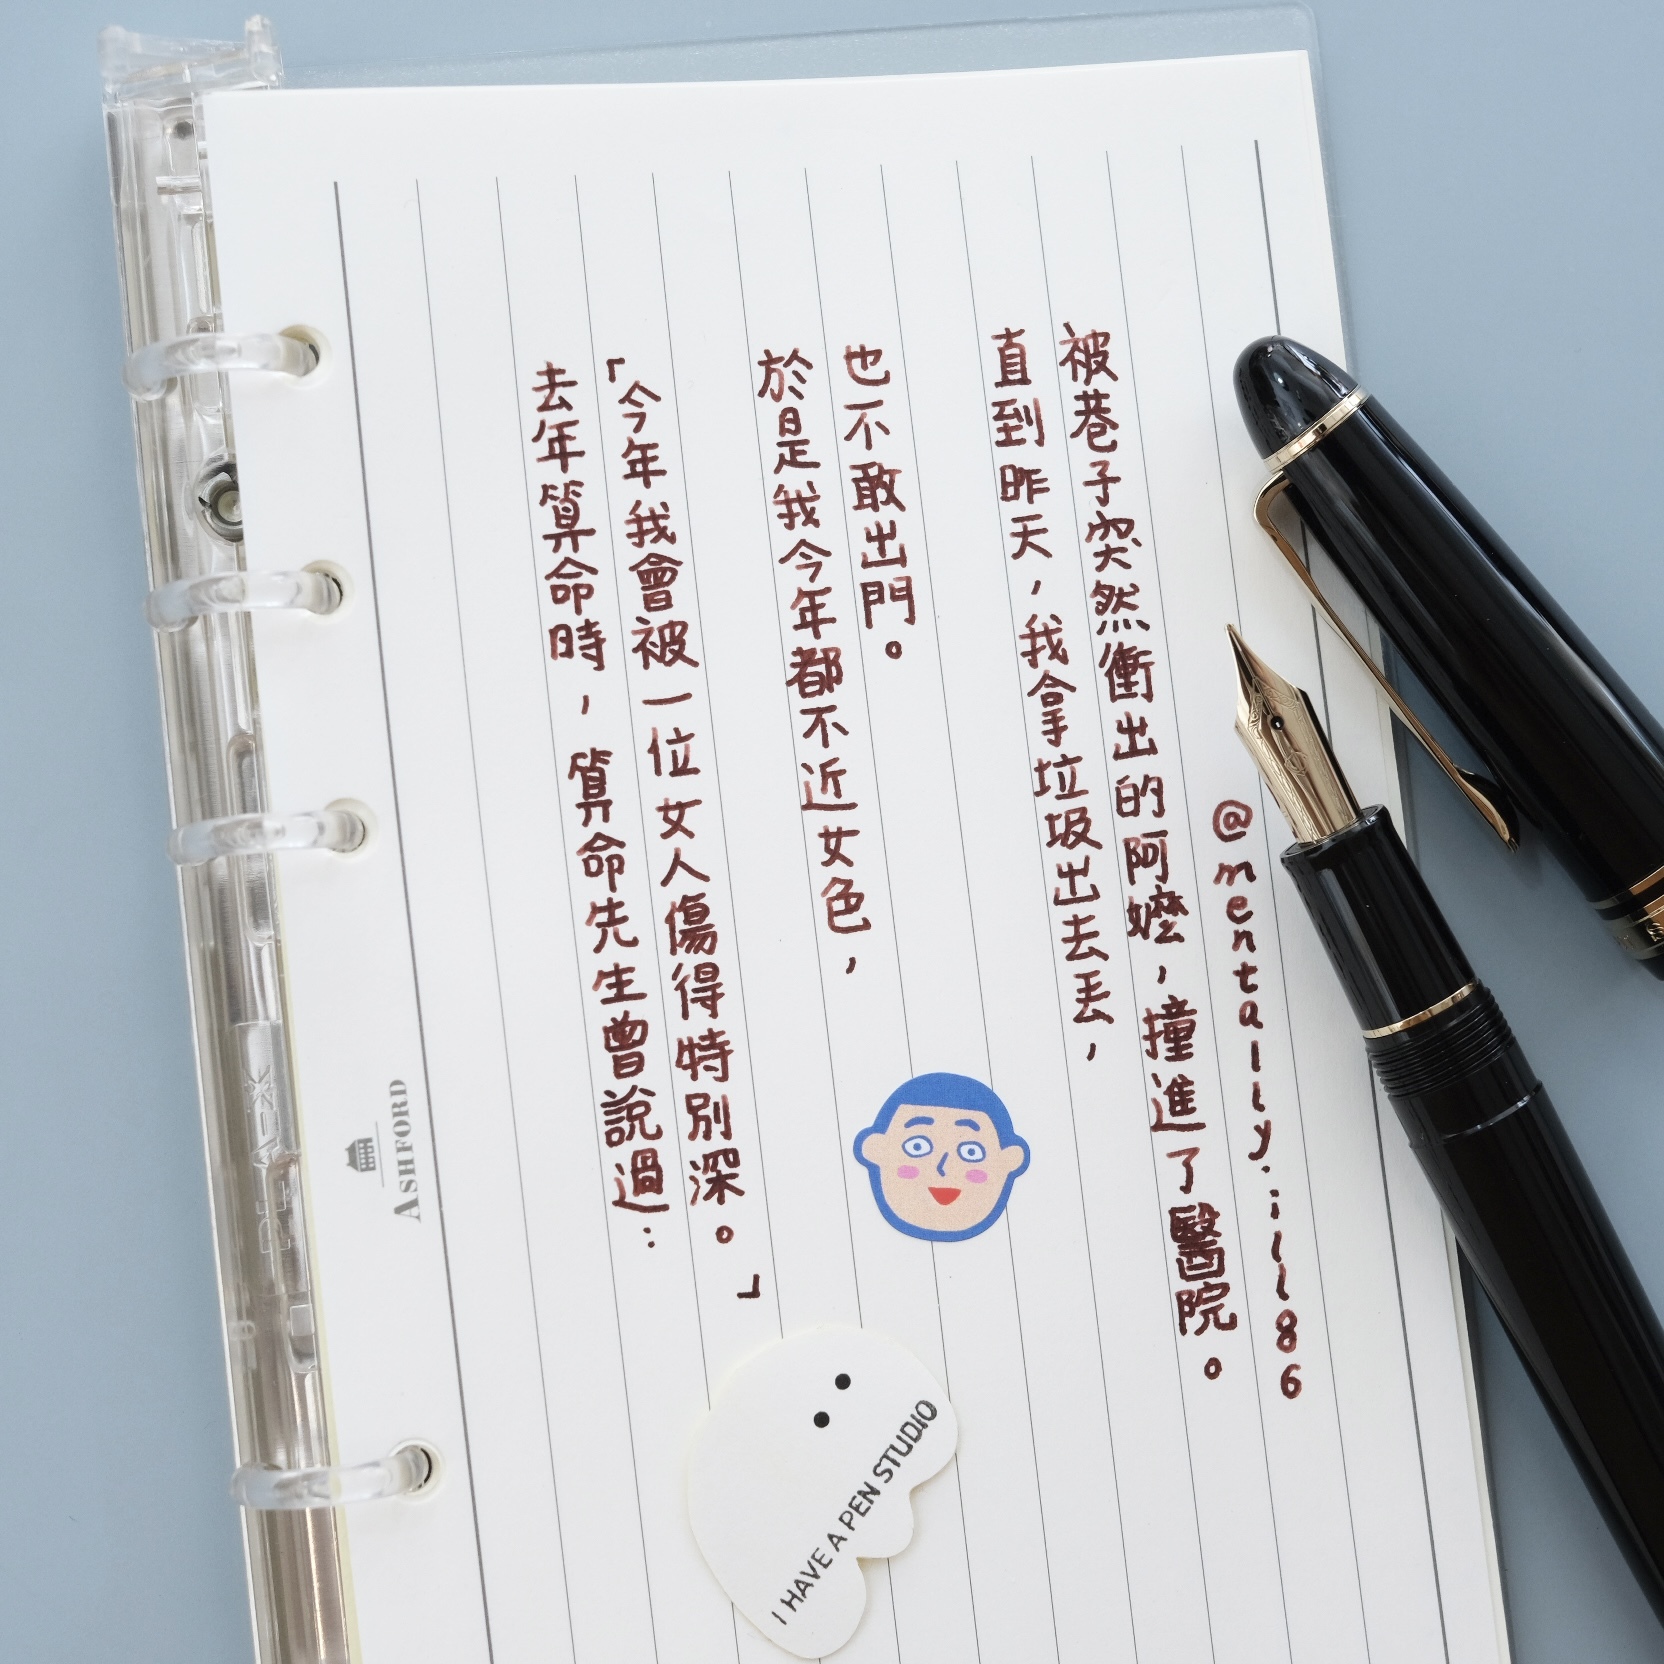 去年算命時，算命先生曾說過：
「今年我會被一位女人傷得特別深。」
於是我今年都不近女色，
也不敢出門。
直到昨天，我拿垃圾出去丟，
被巷子突然衝出的阿嬤，撞進了醫院。
@mentally.ill86
ASHFORD
I HAVE A PEN STUDIO